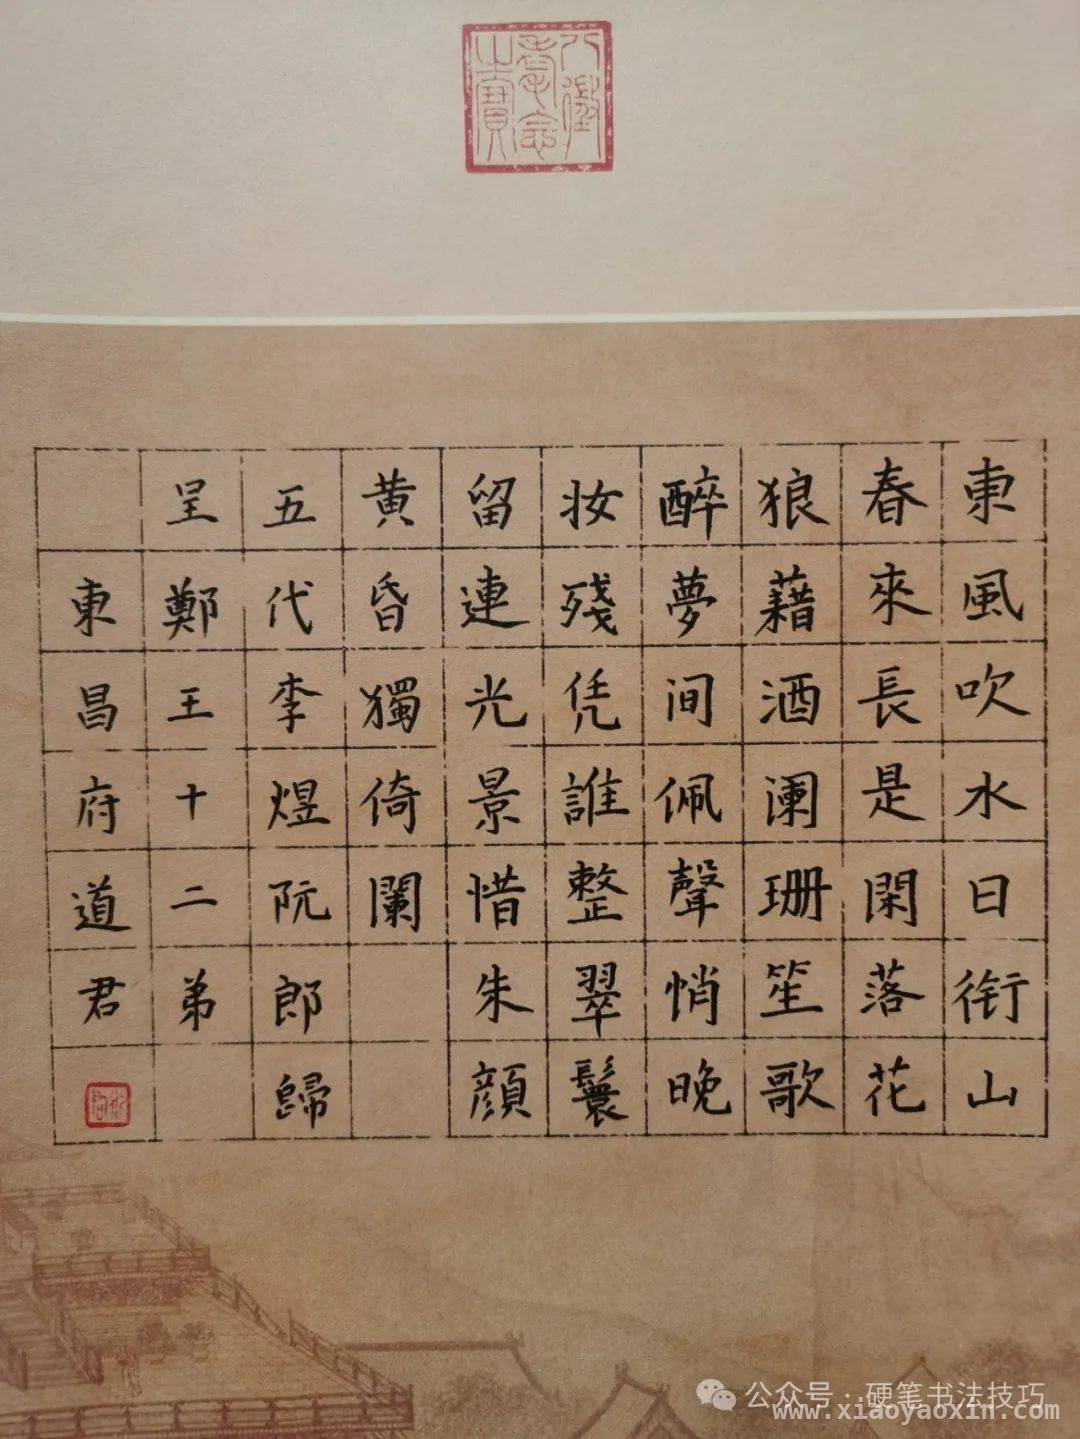 八徵耄念之寶
東風吹水日銜山
春來長是閑落花
狼藉酒阑珊笙歌
醉夢间佩聲悄晚
妆殘凭誰整翠鬟
留連光景惜朱顔
黄昏獨倚闌
五代李煜阮郎歸
呈鄭王十二弟
東昌府道君
公众号·硬笔书法技巧
www.xiaoyaoxin.com